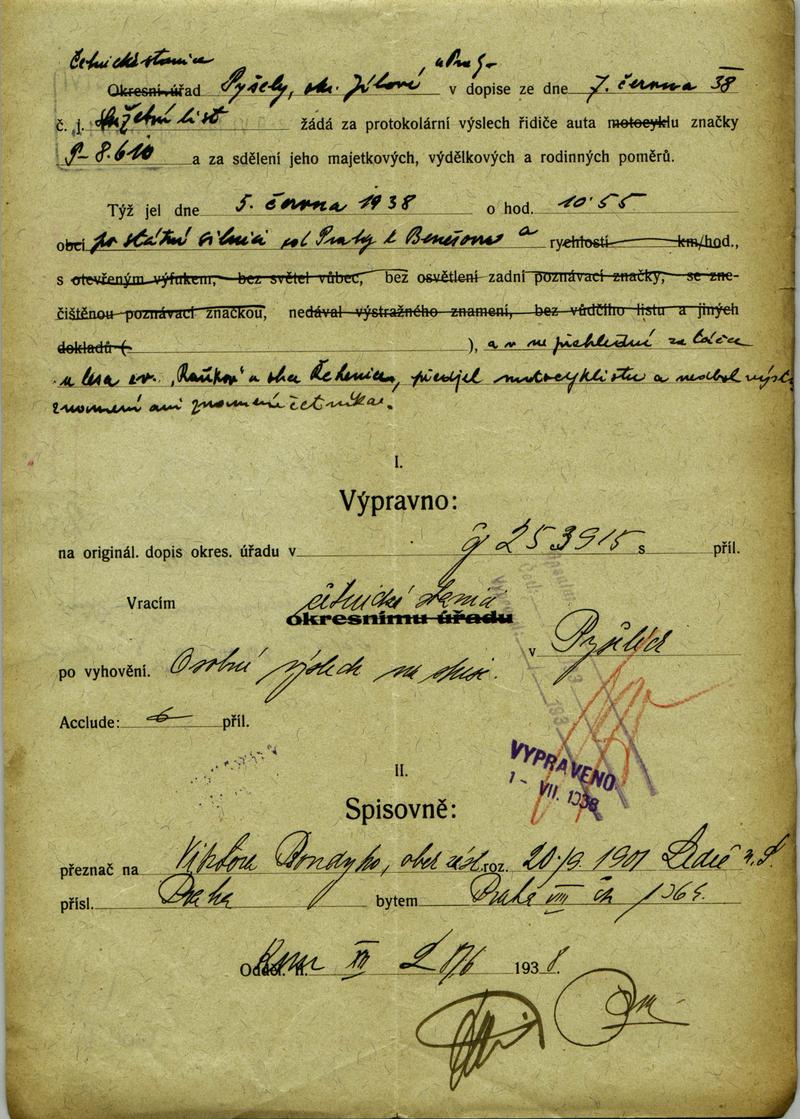 Četnická stanice
Okresní úřad Pyšely, okr. Jílové, u Prahy v dopise ze dne 7. června 38
č. j. služební list žádá za protokolární výslech řidiče auta motocyklu značky
P-8.610 a za sdělení jeho majetkových, výdělkových a rodinných poměrů.
Týž jel dne 5. června 1938 o hod. 10.55
obcí po státní silnici od Prahy k Benešovu a rychlostí km/hod.,
s otevřeným výfukem, bez světel vůbec, bez osvětlení zadní poznávací značky, se zne-
čištěnou poznávací značkou, nedával výstražného znamení, bez vůdčího listu a jiných
dokladů ( ), a v nepřehledné zatáčce
u lesa zv. u obce Řehenice, předjel motocyklistu a nedbal
znamení ani znamení četníka.
I.
Výpravno:
na originál. dopis okres. úřadu v čj 253915 s příl.
Vracím četnické stanici
okresnímu úřadu
v Pyšelích
po vyhovění. Osobní výslech na spise.
Acclude: příl.
VYPRAVENO
1 - VII. 1938
II.
Spisovně:
přeznač na Viktora Bondyho, obch. roz. 20/9. 1901 Ledeč n. S.
přísl. Praha bytem Praha VII čp
Odděl. II. XII 193 8.